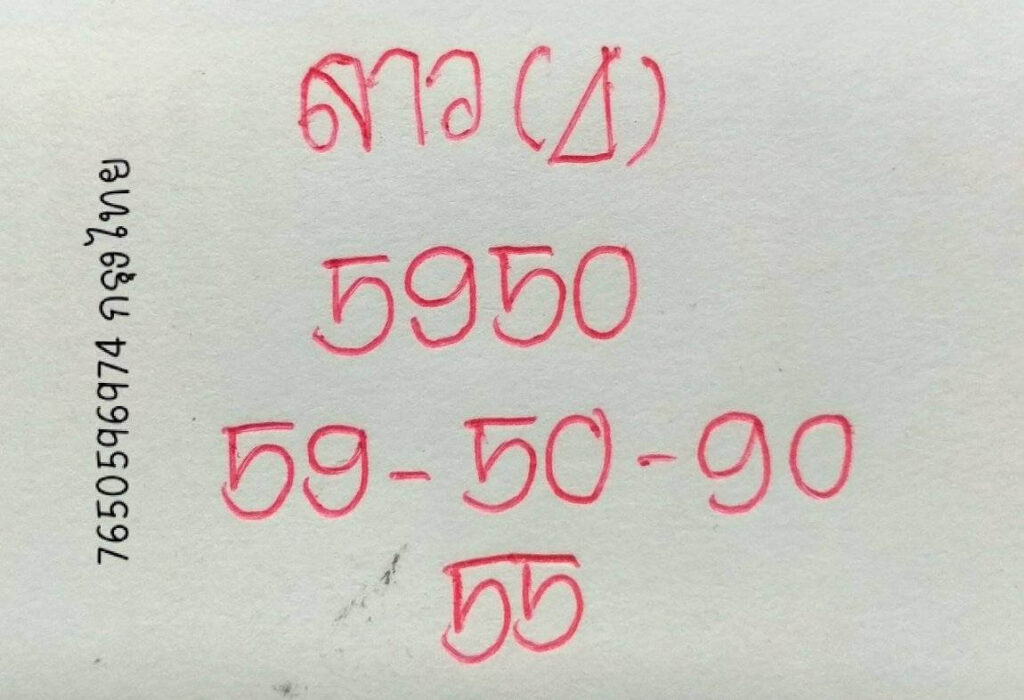 ลาว (ป)
5950
59-50-90
55
7650596974 กรุงไทย